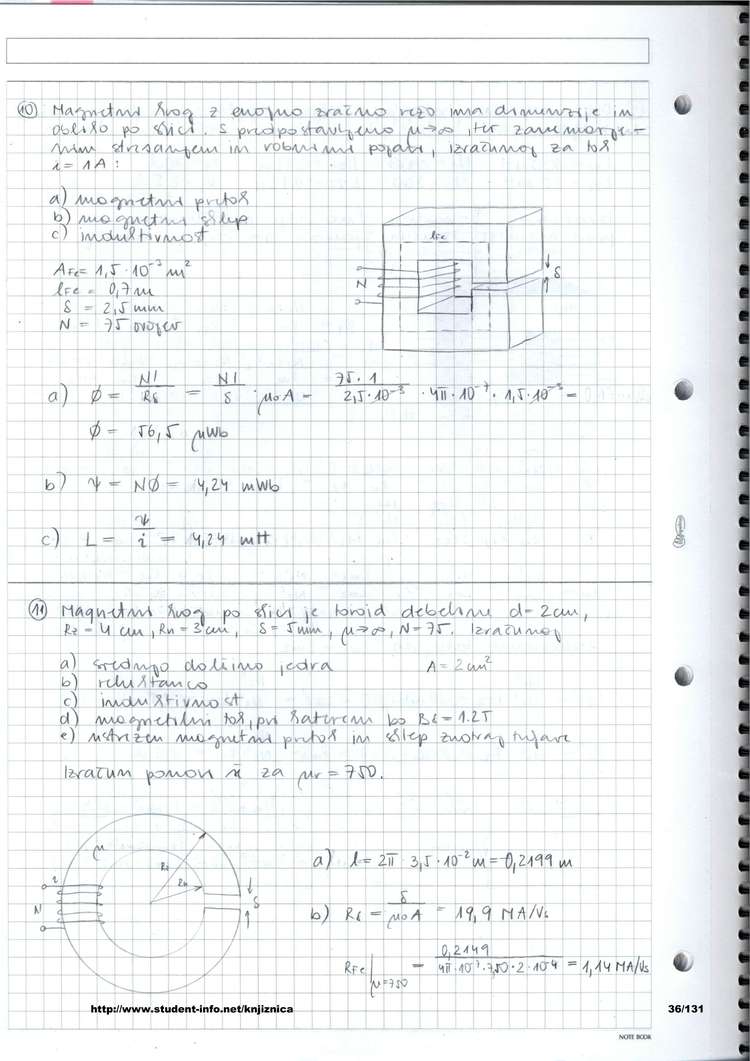 10 Magnetni krog z enojno zračno režo ima dimenzije in
obliko po sliki. S predpostavljeno μ→∞ ter zanemarje-
nim stresanjem in robnimi pojavi, izračunaj za tok
i = 1A :
a) magnetni pretok
b) magnetni sklep
c) induktivnost
AFe = 1,5·10⁻³ m²
lFe = 0,7 m
δ = 2,5 mm
N = 75 ovojev
lFe
N
δ
a) ϕ = NI/Rδ = NI/δ · μ₀A = 75·1/2,5·10⁻³ · 4π·10⁻⁷ · 1,5·10⁻³ =
ϕ = 56,5 μWb
b) ψ = Nϕ = 4,24 mWb
c) L = ψ/i = 4,24 mH
11 Magnetni krog po sliki je toroid debeline d = 2cm,
Rz = 4 cm, Rn = 3 cm, δ = 5mm, μ→∞, N = 75. Izračunaj
a) srednjo dolžino jedra A = 2 cm²
b) reluktanco
c) induktivnost
d) magnetilni tok, pri katerem bo Bδ = 1.2T
e) ustrezen magnetni pretok in sklep znotraj tuljave
Izračun ponovi še za μr = 750.
μ
Rz
Rn
i
N
δ
a) l = 2π 3,5·10⁻² m = 0,2199 m
b) Rδ = δ/μ₀A = 19,9 MA/Vs
RFe|μ=750 = 0,2149/4π·10⁻⁷·750·2·10⁻⁴ = 1,14 MA/Vs
http://www.student-info.net/knjiznica
36/131
NOTE BOOK